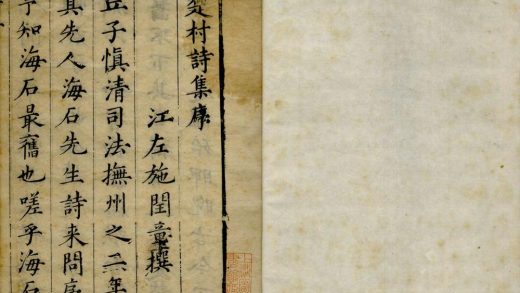 楚村詩集序
江左施閏章撰
丘子慎清司法撫州之二年
其先人海石先生詩来問序
予知海石最舊也嗟乎海石